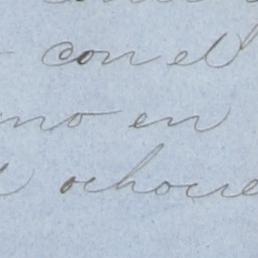 con el
mo en
ochocie